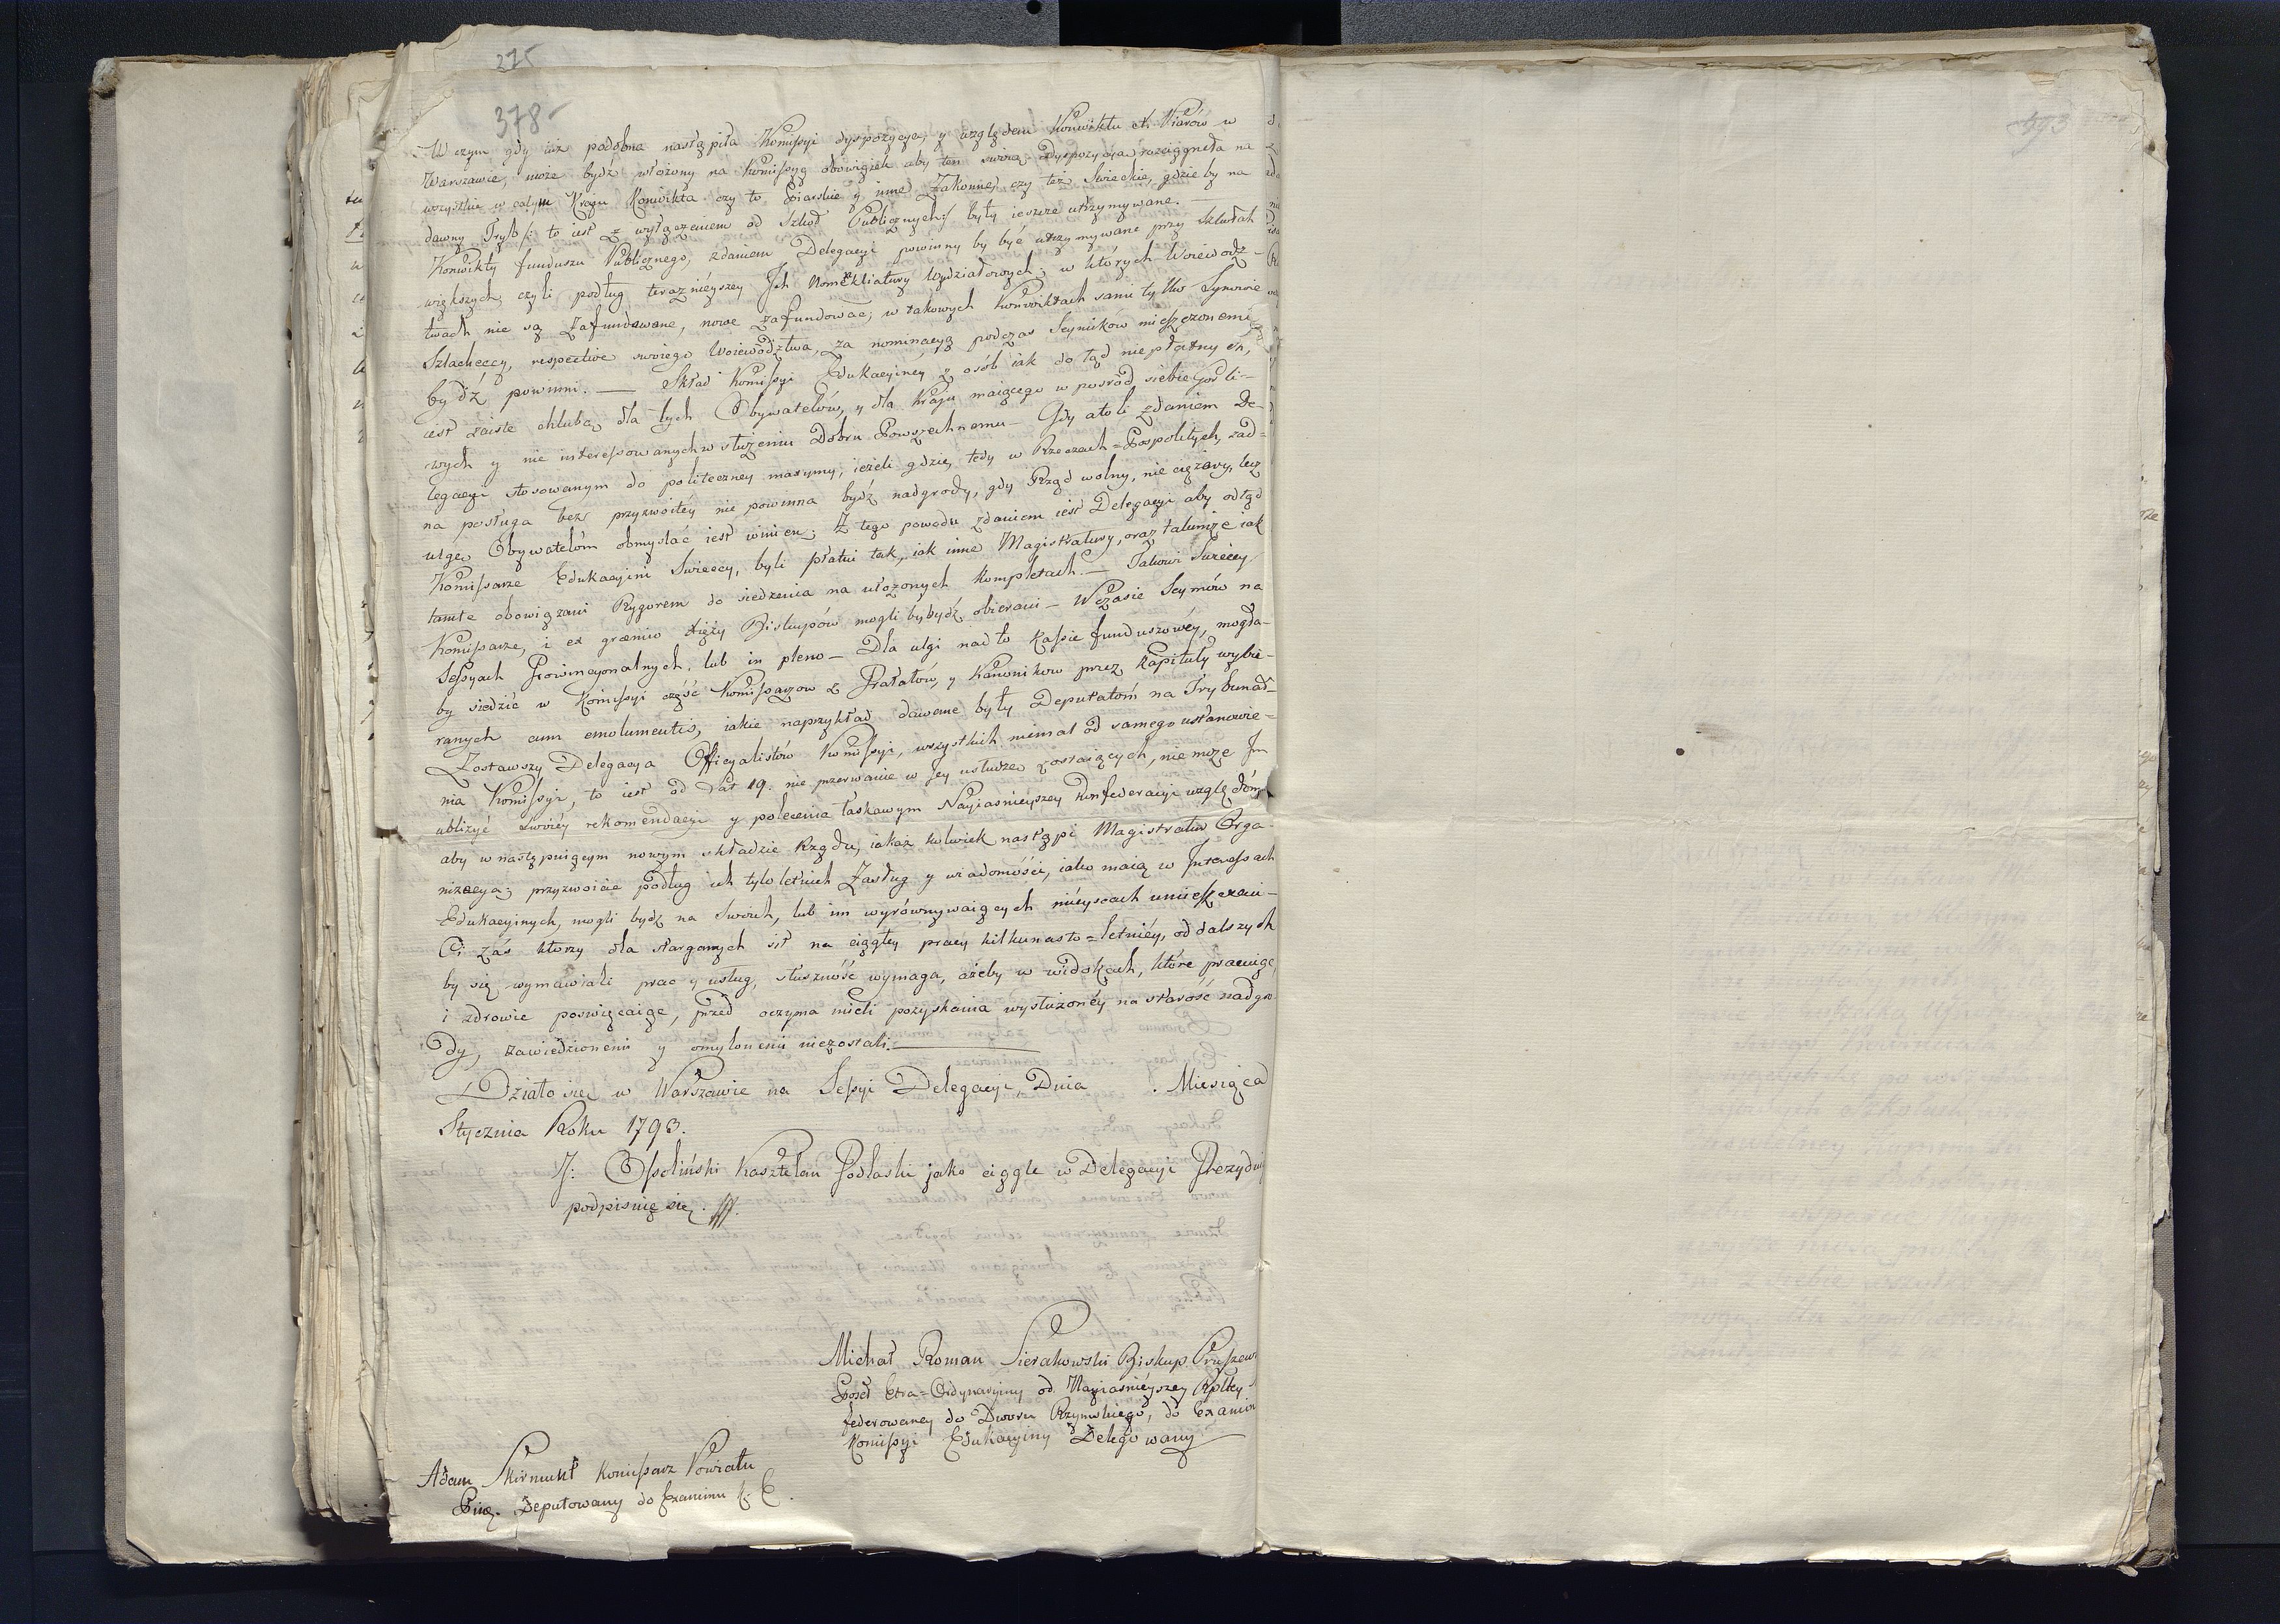 275
378
W czym gdy iuż podobna nastąpiła Kommissyi dyspozycya, y względem Konwiktu XX. Piiarów w
Warszawie, może bydź włożony na Kommissyą obowiązek aby ten swoią Dyspozycyą rozciągneła na
wszystkie w całym Kraju Konwikta czy to Piiarskie y inne Zakonne, czy też Swieckie, gdzie by na
dawny Tryb /: to iest z wyłączeniem od Szkół Publicznych:/ były ieszcze utrzymywane. —
Konwikty funduszu Publicznego, zdaniem Delegacyi powinny by być utrzymywane przy Szkołach
większych, czyli podług teraznieyszey Ich Nomeklatury Wydziałowych; w których Woiewodz-
twach nie są Zafundowane, nowe zafundować; w takowych Konwiktach sami tylko Synowie
Szlacheccy, respective swoiego Woiewodztwa, za nominacyą podczas Seymików mieszczonemi
bydź powinni. — Skład Kommissyi Edukacyiney z osób iak do tąd niepłatnych,
iest zaiste chlubą dla tych Obywatelów, y dla Kraju maiącego w pośród siebie Gorli-
wych y nie interessowanych w służeniu Dobru Powszechnemu — Gdy atoli zdaniem De-
legacyi stosowanym do politeczney maxymy, ieżeli gdzie, tedy w Rzeczach=Pospolitych, żad=
na posługa bez przyzwoitey nie powinna bydź nadgrody, gdy Rząd wolny, nie ciężary, lecz
ulgę Obywatelóm obmyślać iest winien; Z tego powodu zdaniem iest Delegacyi aby odtąd
Kommissarze Edukacyini Swieccy, byli płatni tak, iak inne Magistratury, oraz takimże iak
tamte obowiązani Rygorem do siedzenia na ułożonych Kompletach. — Takowi Swieccy
Kommissarze, i ex gremio Xięży Biskupów mogli by bydź obierani — W czasie Seymów na
Sessyach Prowincyonalnych, lub in pleno — Dla ulgi nad to Kassie funduszowéy, mogła-
by siedzić w Kommissyi część Kommissarzow z Prałatów, y Kanonikow przez Kapituły wybie-
ranych cum emolumentis, iakie naprzykład dawane były Deputatóm na Trybunał —
Zostawszy Delegacya Officyalistów Kommissyi, wszystkich niemal od samego ustanowie=
nia Kommissyi, to iest od Lat 19. nie przerwanie w Jey usłudze zostaiących, nie może Im
ubliżyć swoiéy rekomendacyi y polecenia łaskawym Nayiaśnieyszey Konfederacyi względóm
aby w następuiącym nowym składzie Rządu, iakaż kolwiek nastąpi Magistratur Orga-
nizacya; przyzwoicie podług ich tyloletnich Zasług y wiadomości, iako maią w Interessach
Edukacyinych, mogli bydz na Swoich, lub im wyrównywaiących mieyscach umieszczeni —
Ci zaś ktorzy dla stargannych sił na ciągłey pracy kilkunasto=letniéy, od dalszych
by się wymawiali prac y usług, słuszność wymaga, ażeby w widokach, które pracuiąc,
i zdrowie poswięcaiąc, przed oczyma mieli pozyskania wysłużonéy na starość nadgro-
dy, zawiedzionemi y omylonemi niezostali. —
Działo się w Warszawie na Sessyi Delegacyi, Dnia . Miesiąca
Stycznia Roku 1793.
J: Ossoliński Kasztelan Podlaski jako ciągle w Delegacyi Prezyduią
podpisuię się.
Michał Roman Sierakowski Biskup Pruszew
Poseł Extra=Ordynaryiny od Nayiaśnieyszey Rpltey
federowaney do Dworu Rzymskiego, do Examin
Komissyi Edukacyiny Delegowany
Adam Skirmunt Komissarz Powiatu
Piń. Deputowany do Examinu K: E.
493